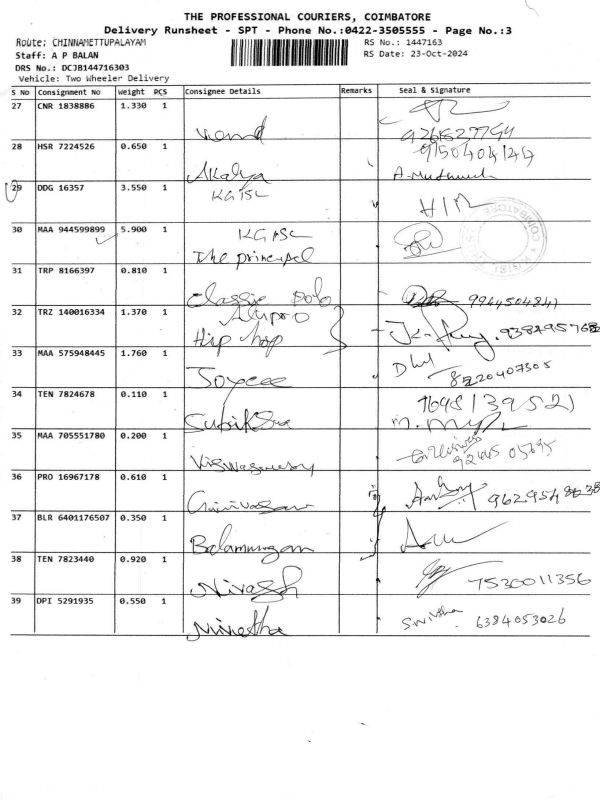 THE PROFESSIONAL COURIERS, COIMBATORE
Delivery Runsheet - SPT - Phone No.:0422-3505555 - Page No.:3
Route: CHINNAMETTUPALAYAM
RS No.: 1447163
Staff: A P BALAN
RS Date: 23-Oct-2024
DRS No.: DCJB144716303
Vehicle: Two Wheeler Delivery
S No Consignment No Weight PCS Consignee Details Remarks Seal & Signature
27 CNR 1838886 1.330 1
28 HSR 7224526 0.650 1 9150404147
Akalya
29 DDG 16357 3.550 1 KGISL
30 MAA 944599899 5.900 1 KGISL
The principal
31 TRP 8166397 0.810 1
Classic Polo 9944504841
32 TRZ 140016334 1.370 1
Hip hop
33 MAA 575948445 1.760 1
Joycee 8220407305
34 TEN 7824678 0.110 1
Subiksha
35 MAA 705551780 0.200 1
36 PRO 16967178 0.610 1
37 BLR 6401176507 0.350 1
Balamurugan
38 TEN 7823440 0.920 1
Nivash 7530011356
39 DPI 5291935 0.550 1
6384053026